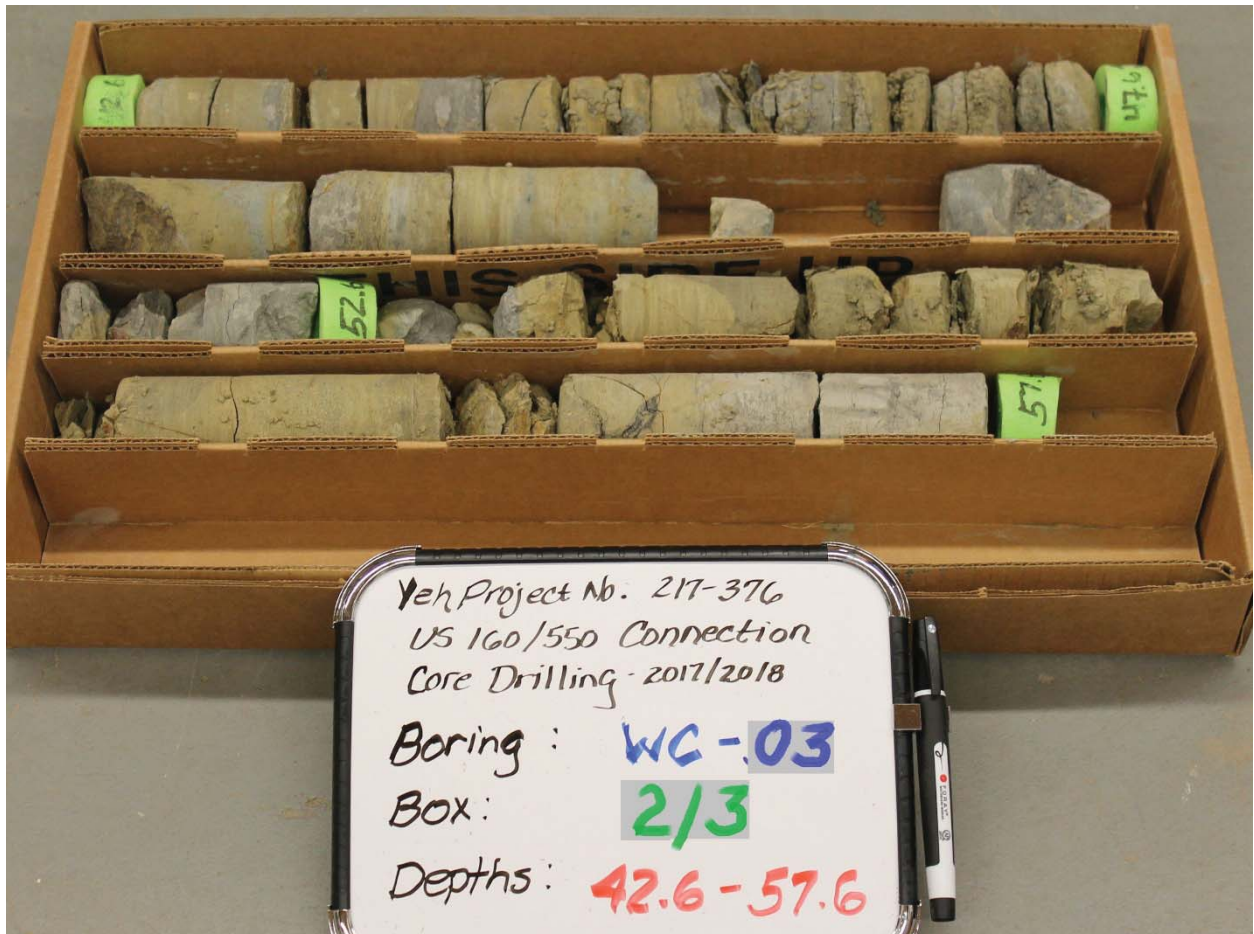 42.6
47.6
THIS SIDE UP
52.6
57.
Yeh Project No. 217-376
US 160/550 Connection
Core Drilling - 2017/2018
Boring : WC-.03
Box: 2/3
Depths: 42.6-57.6